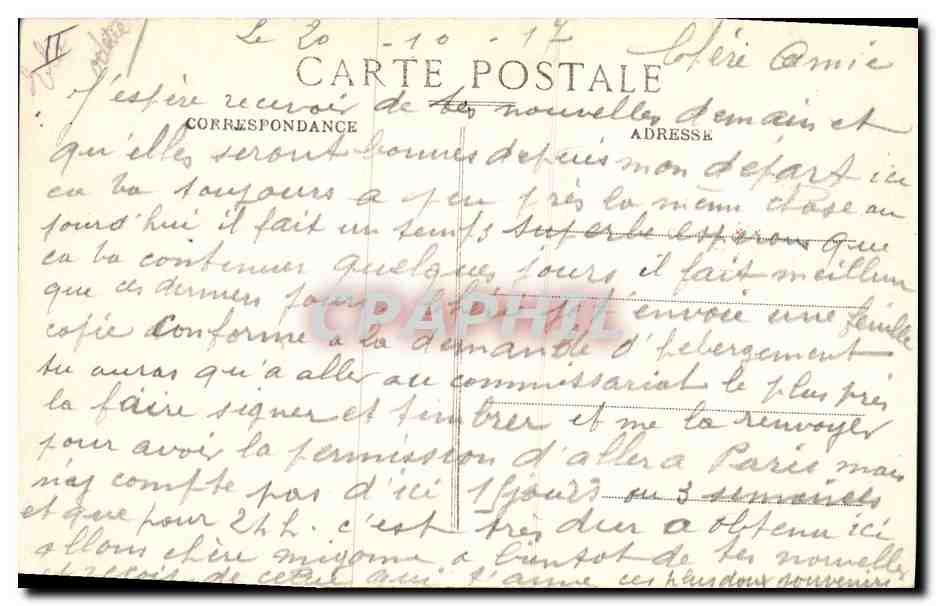 II
Le 20 - 10 - 17
Chère Amie
CARTE POSTALE
J'espère recevoir de tes nouvelles demain et
CORRESPONDANCE
ADRESSE
qu'elles seront bonnes depuis mon départ ici
ca va toujours a peu près la même chose au
jourd'hui il fait un temps superbe esperons que
ca va continuer quelques jours il fait meilleur
que ces derniers jours j't'envoie une feuille
CPAPHIL
copie conforme a la demande d'hébergement
tu auras qu'a aller au commissariat le plus près
la faire signer et timbrer et me la renvoyer
pour avoir la permission d'aller a Paris mais
n'aj compte pas d'ici 15 jours ou 3 semaines
et que pour 24 h. c'est tres dur a obtenu ici
allons chère mignonne a bientot de tes nouvelles
et recois de celui qui t'aime ces plus doux souvenirs